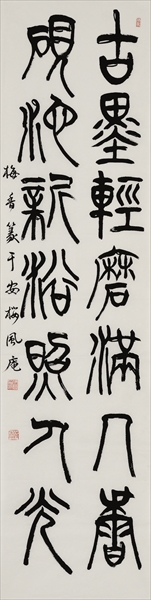 古墨輕磨滿几香
硯池新浴照人光
梅香篆于安梅風庵